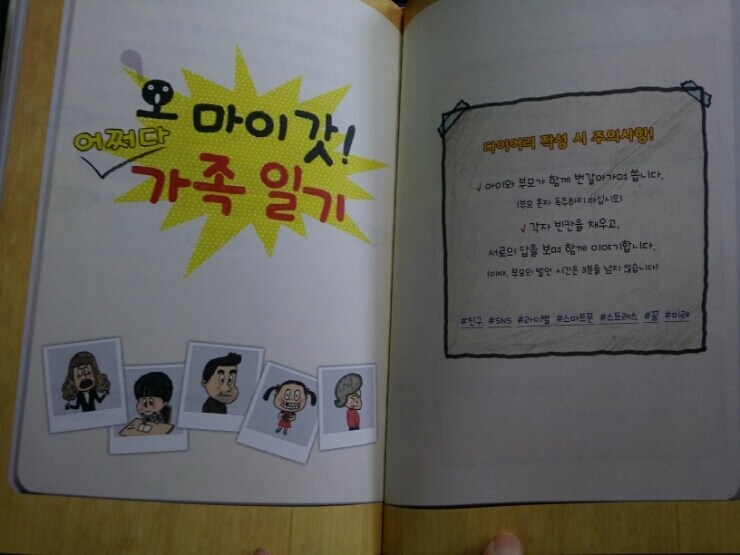 오 마이 갓!
어쩌다
가족 일기
다이어리 작성 시 주의사항!
√ 아이와 부모가 함께 번갈아가며 씁니다.
(부모 혼자 독주하지 마십시오)
√ 각자 빈칸을 채우고,
서로의 답을 보며 함께 이야기합니다.
(이때, 부모의 발언 시간은 3분을 넘지 않습니다)
#친구 #SNS #라이벌 #스마트폰 #스트레스 #꿈 #미래